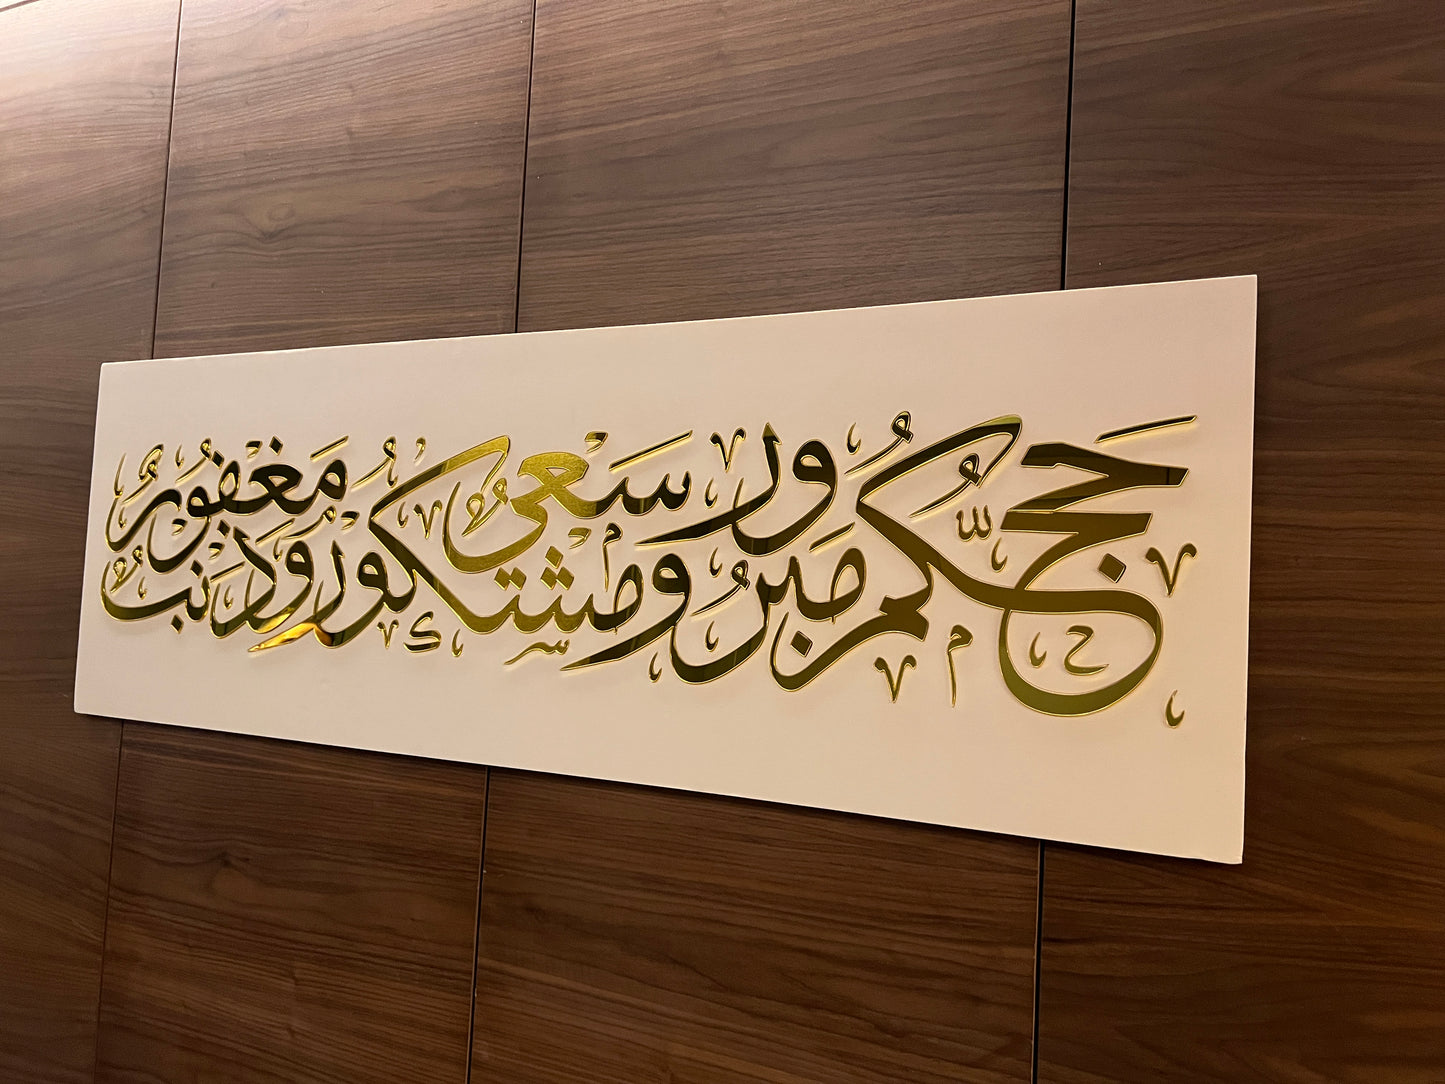 حَجُّكُم مَبْرُورٌ وَسَعْيٌ مَشْكُورٌ وَذَنْبٌ مَغْفُورٌ